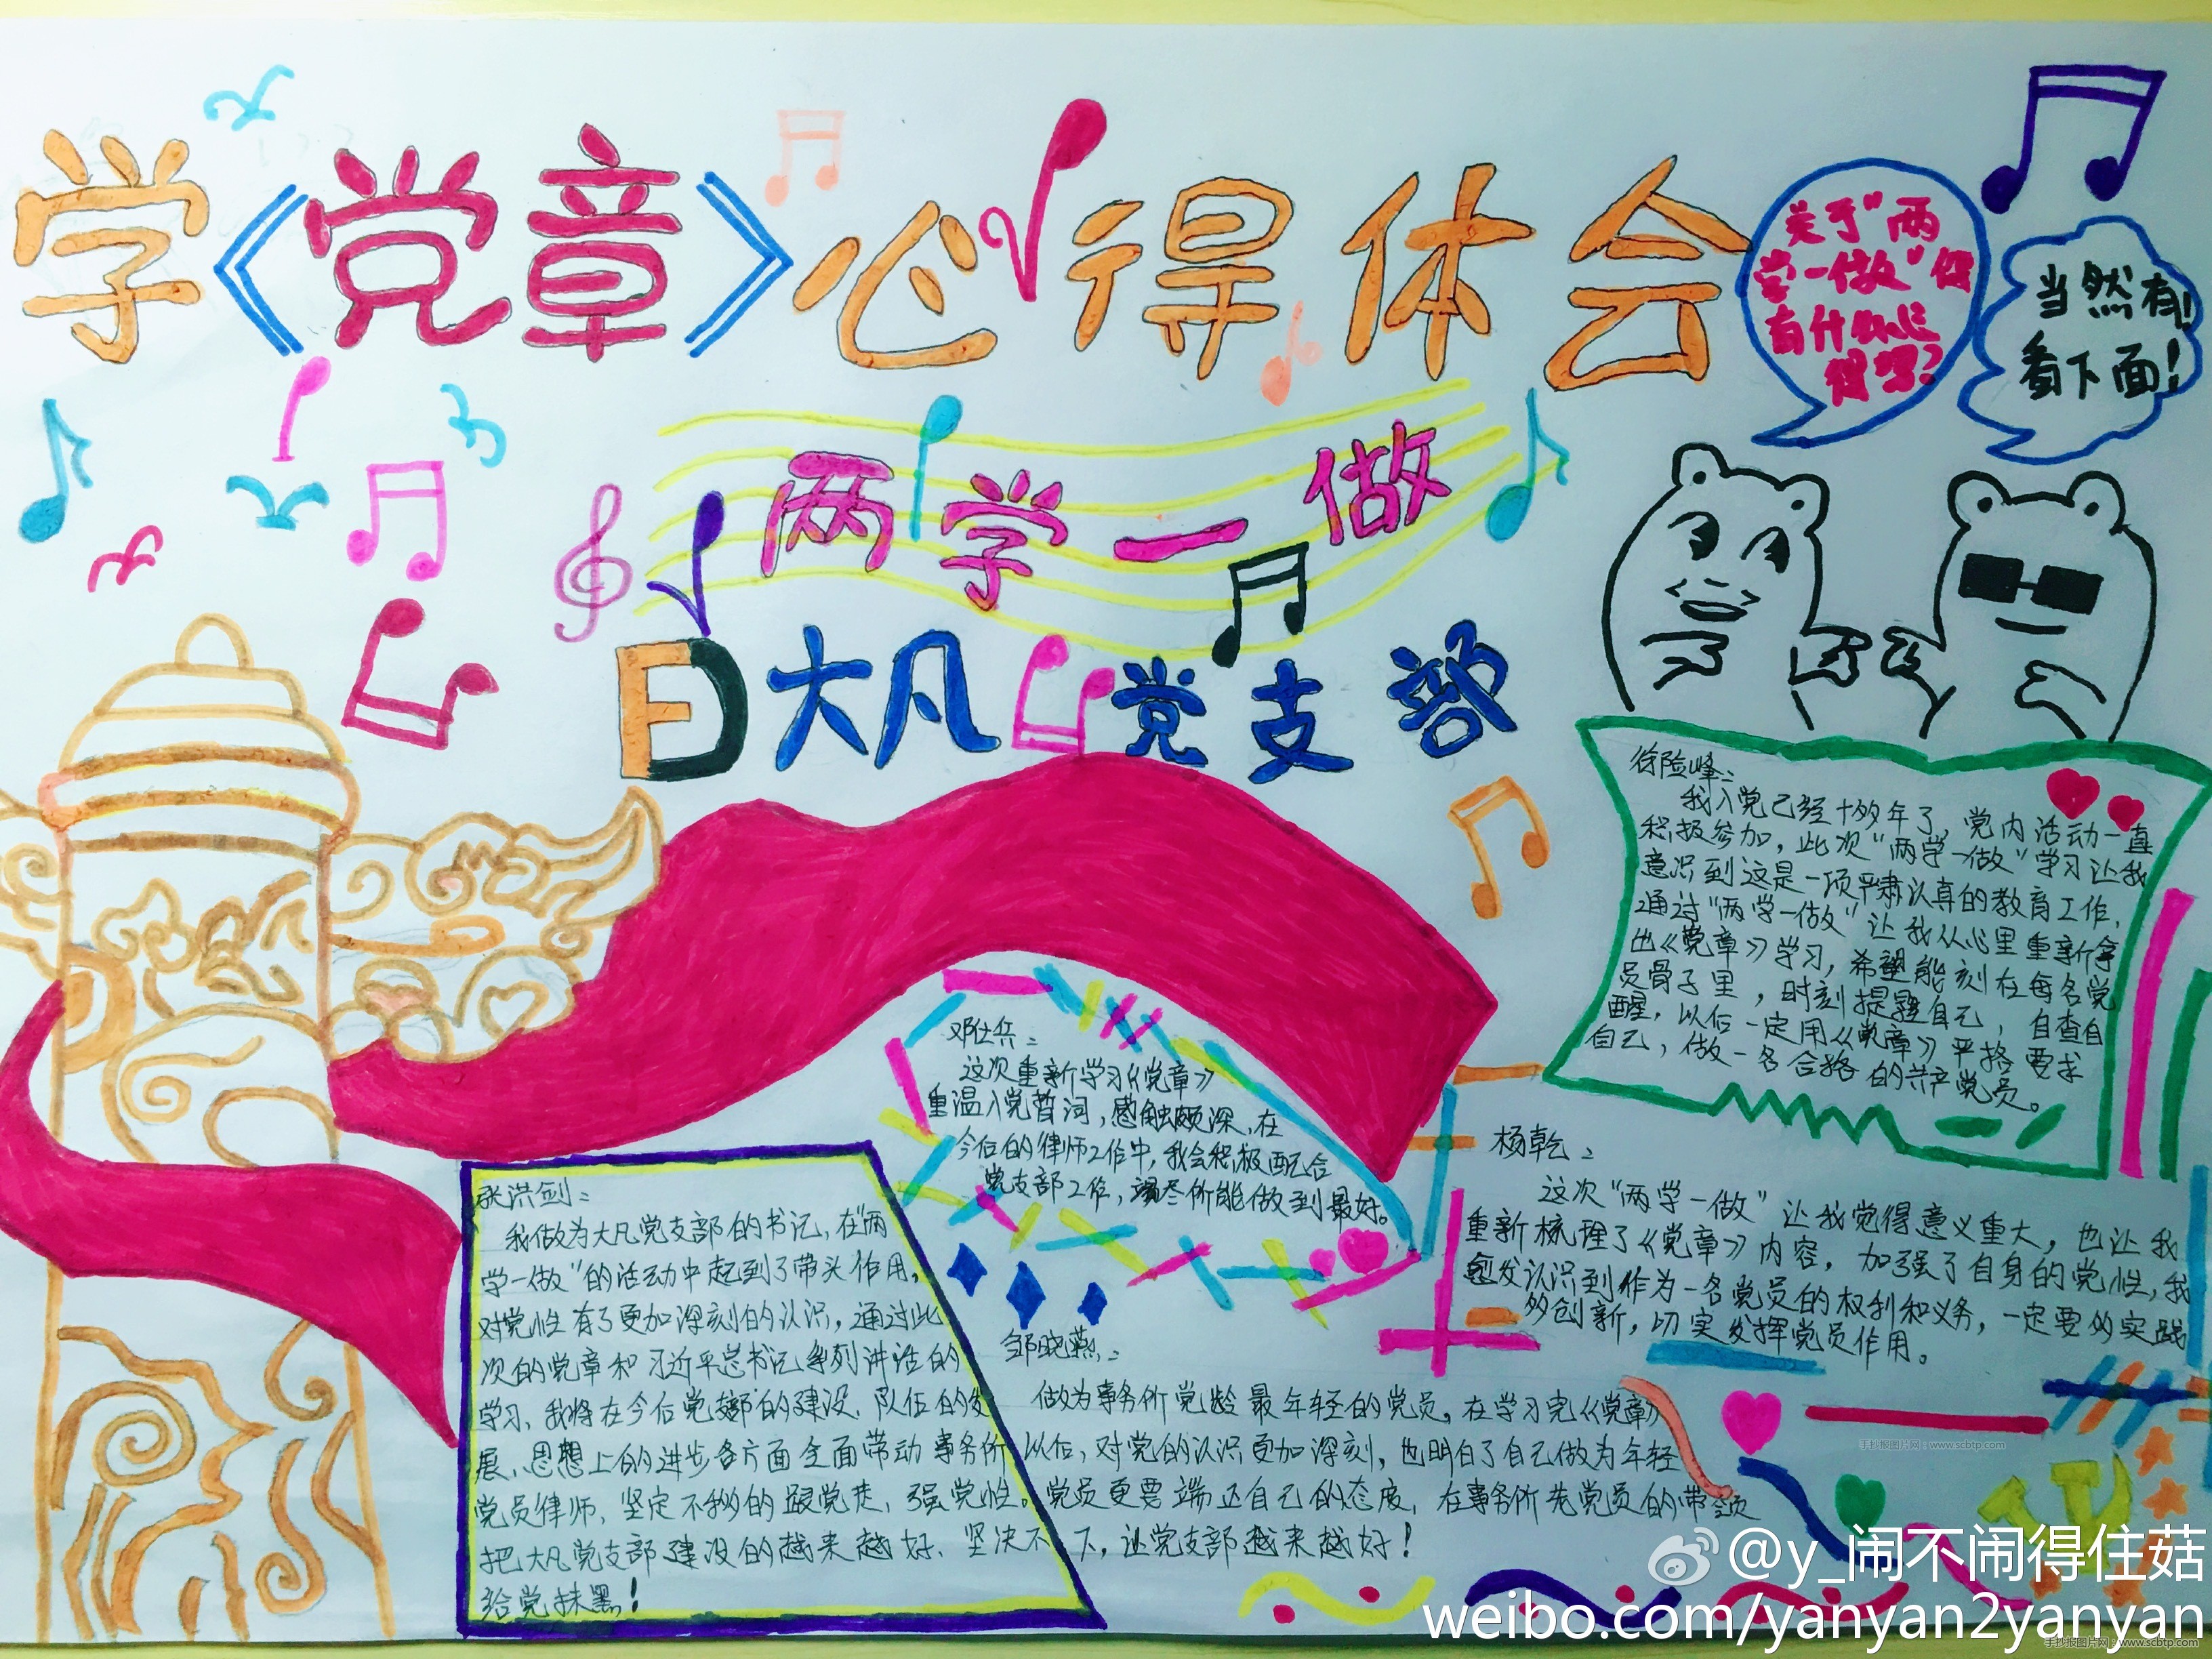 学《党章》心得体会
关于"两
学一做"你
有什么心
得写?
当然有!
看下面!
两学一做
大凡党支部
徐险峰:
我入党已经十多年了,党内活动一直
积极参加,此次"两学一做"学习让我
意识到这是一项严肃认真的教育工作,
通过"两学一做"让我从心里重新拿
出《党章》学习,希望能刻在每名党
员骨子里,时刻提醒自己,自查自
醒,以后一定用《党章》严格要求
自己,做一名合格的共产党员。
邓仕兵:
这次重新学习《党章》
重温入党誓词,感触颇深,在
今后的律师工作中,我会积极配合
党支部工作,竭尽所能做到最好。
杨乾:
这次"两学一做"让我觉得意义重大,也让我
重新梳理了《党章》内容,加强了自身的党性,我
愈发认识到作为一名党员的权利和义务,一定要的实践
多创新,切实发挥党员作用。
张洪剑:
我做为大凡党支部的书记,在"两
学一做"的活动中起到了带头作用,
对党性有了更加深刻的认识,通过此
次的党章和习近平总书记系列讲话的
学习,我将在今后党支部的建设、队伍的发
展、思想上的进步各方面全面带动事务所
党员律师,坚定不移的跟党走,强党性。
把大凡党支部建设的越来越好、坚决不
给党抹黑!
邹晓燕:
做为事务所党龄最年轻的党员,在学习完《党章》
以后,对党的认识更加深刻,也明白了自己做为年轻
党员更要端正自己的态度,在事务所老党员的带领
下,让党支部越来越好!
手抄报图片网:www.scbtp.com
@y_闹不闹得住菇
weibo.com/yanyan2yanyan
手抄报图片网:www.scbtp.com